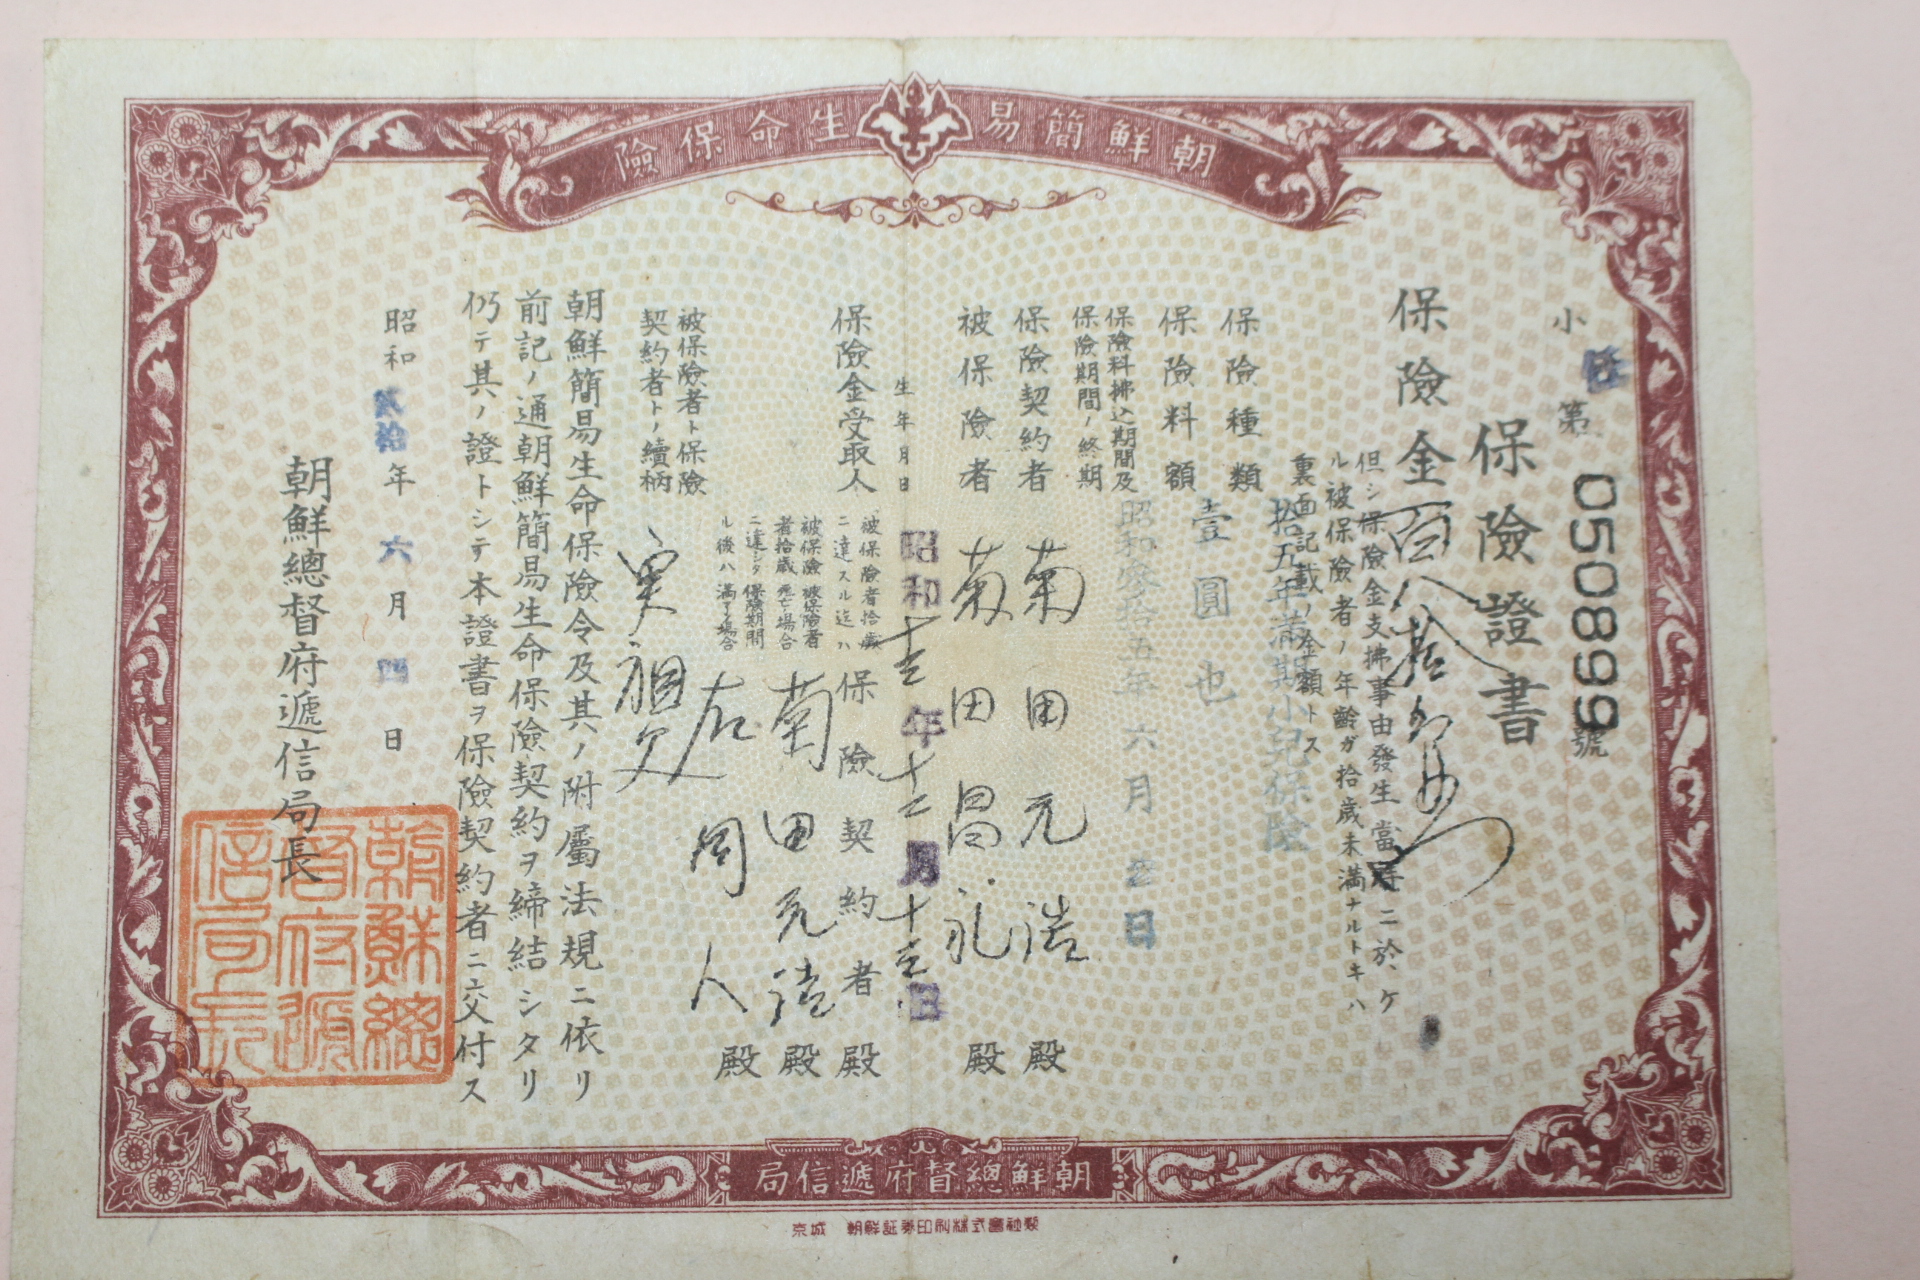 朝鮮簡易生命保險
小
第 0508999 號
保險證書
保險金百八拾
但シ保險金支拂事由發生當時ニ於ケ
ル被保險者ノ年齡ガ拾歲未滿ナルトキハ
裏面記載ノ金額トス
保險種類 拾五年滿期小兒保險
保險料額 壹圓也
保險料拂込期間及
保險期間ノ終期
昭和參拾五年六月 日
保險契約者 菊田元浩殿
被保險者 菊田昌礼殿
生年月日 昭和十三年十二月十三日
保險金受取人
被保險者拾歲
ニ達スル迄ハ
保險契約者殿
被保險者拾歲ニ達シタ
被保險者死亡ノ場合
菊田元浩殿
保險期間
ル後ハ
滿了ノ場合
右同人殿
被保險者ト保險
契約者トノ續柄
実祖父
朝鮮簡易生命保險令及其ノ附屬法規ニ依リ
前記ノ通朝鮮簡易生命保險契約ヲ締結シタリ
仍テ其ノ證トシテ本證書ヲ保險契約者ニ交付ス
昭和貳拾年六月四日
朝鮮總督府遞信局長
朝鮮總督府遞信局長
朝鮮總督府遞信局
京城 朝鮮証券印刷株式會社製